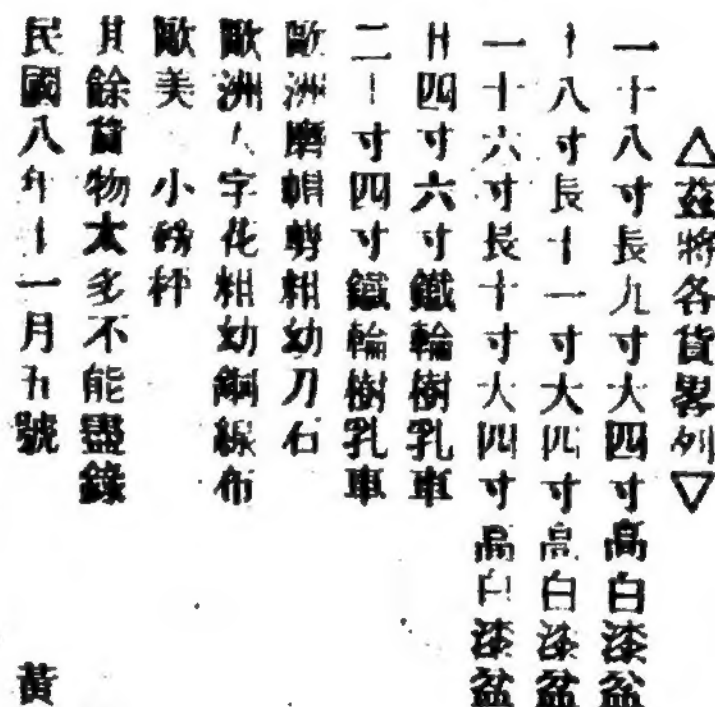 △茲將各貨畧列▽
一十八寸長九寸大四寸高白漆盆
十八寸長十一寸大四寸高白漆盆
一十六寸長十寸大四寸高白漆盆
廿四寸六寸鐵輪樹乳車
二十寸四寸鐵輪樹乳車
歐洲磨鋇剪粗幼刀石
歐洲人字花粗幼銅線布
歐美 小磅枰
其餘貨物太多不能盡錄
民國八年十一月五號 黃